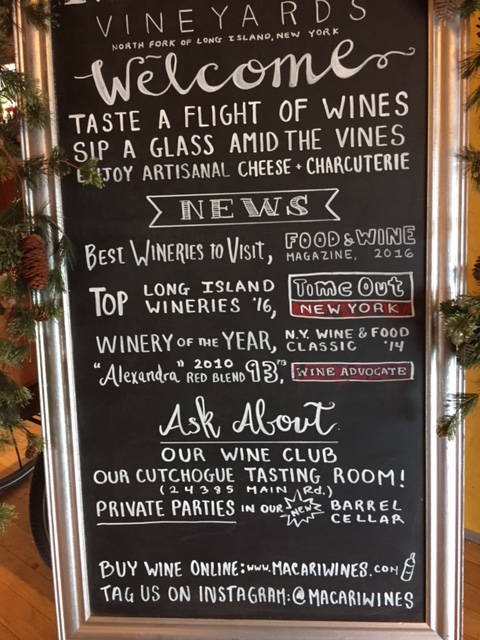 VINEYARDS
NORTH FORK OF LONG ISLAND, NEW YORK
Welcome
TASTE A FLIGHT OF WINES
SIP A GLASS AMID THE VINES
ENJOY ARTISANAL CHEESE + CHARCUTERIE
NEWS
BEST WINERIES TO VISIT, FOOD & WINE MAGAZINE, 2016
TOP LONG ISLAND WINERIES '16, Time Out NEW YORK
WINERY OF THE YEAR, N.Y. WINE & FOOD CLASSIC '14
"Alexandra" 2010 RED BLEND 93PTS, WINE ADVOCATE
Ask About
OUR WINE CLUB
OUR CUTCHOGUE TASTING ROOM!
(24385 MAIN Rd.)
PRIVATE PARTIES IN OUR NEW BARREL CELLAR
BUY WINE ONLINE: www.MACARIWINES.COM
TAG US ON INSTAGRAM: @MACARIWINES